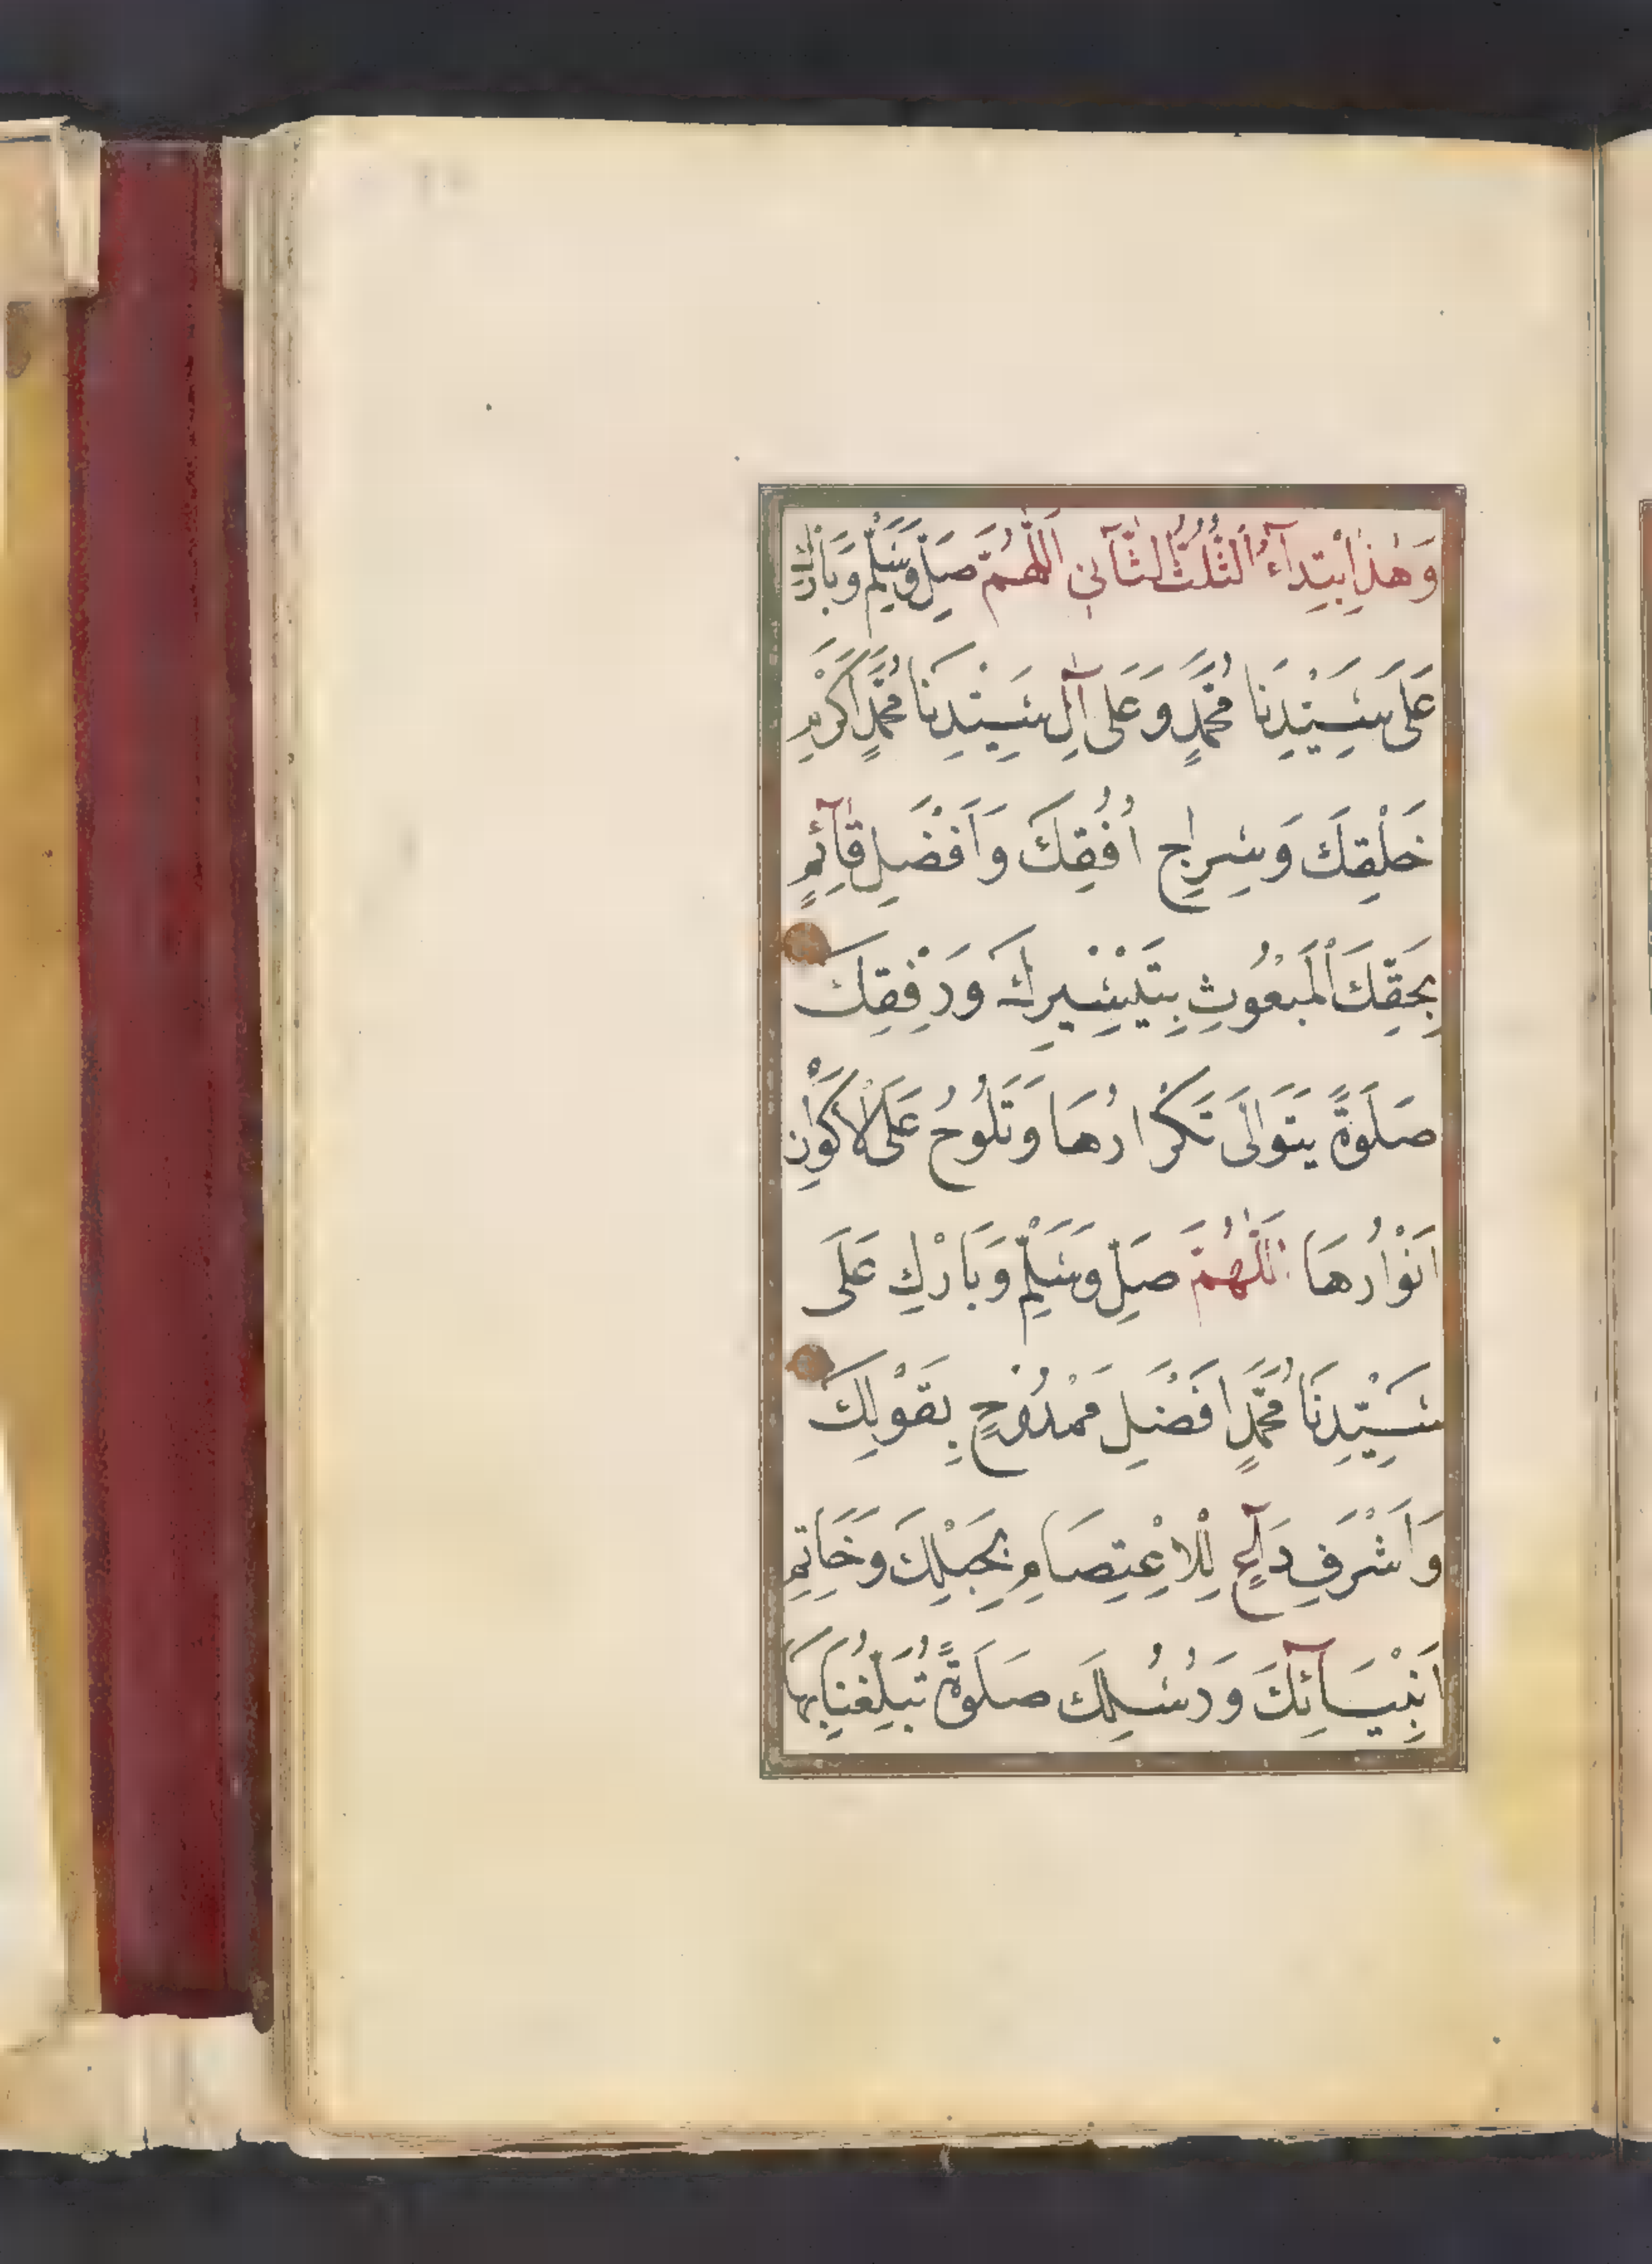 وَهٰذِا بْتِدَآءُ الثُّلُثُ الثَّآنِي اَللّٰهُمَّ صَلِّ وَسَلِّمْ وَبَارِكْ
عَلَى سَيِّدِنَا مُحَمَّدٍ وَعَلَى آلِ سَيِّدِنَا مُحَمَّدٍ اَكْرَمِ
خَلْقِكَ وَسِرَاجِ اُفُقِكَ وَاَفْضَلِ قَآئِمٍ
بِحَقِّكَ الْمَبْعُوثِ بِتَيْسِيرِكَ وَرِفْقِكَ
صَلَوةً يَتَوَالَى تَكْرَارُهَا وَتَلُوحُ عَلَى الْاَكْوَانِ
اَنْوَارُهَا اَللّٰهُمَّ صَلِّ وَسَلِّمْ وَبَارِكْ عَلَى
سَيِّدِنَا مُحَمَّدٍ اَفْضَلِ مَمْدُوحٍ بِقَوْلِكَ
وَاَشْرَفِ دَآعٍ لِلْاِعْتِصَامِ بِحَبْلِكَ وَخَاتِمِ
اَنْبِيَآئِكَ وَرُسُلِكَ صَلَوةً تُبَلِّغُنَا بِهَا